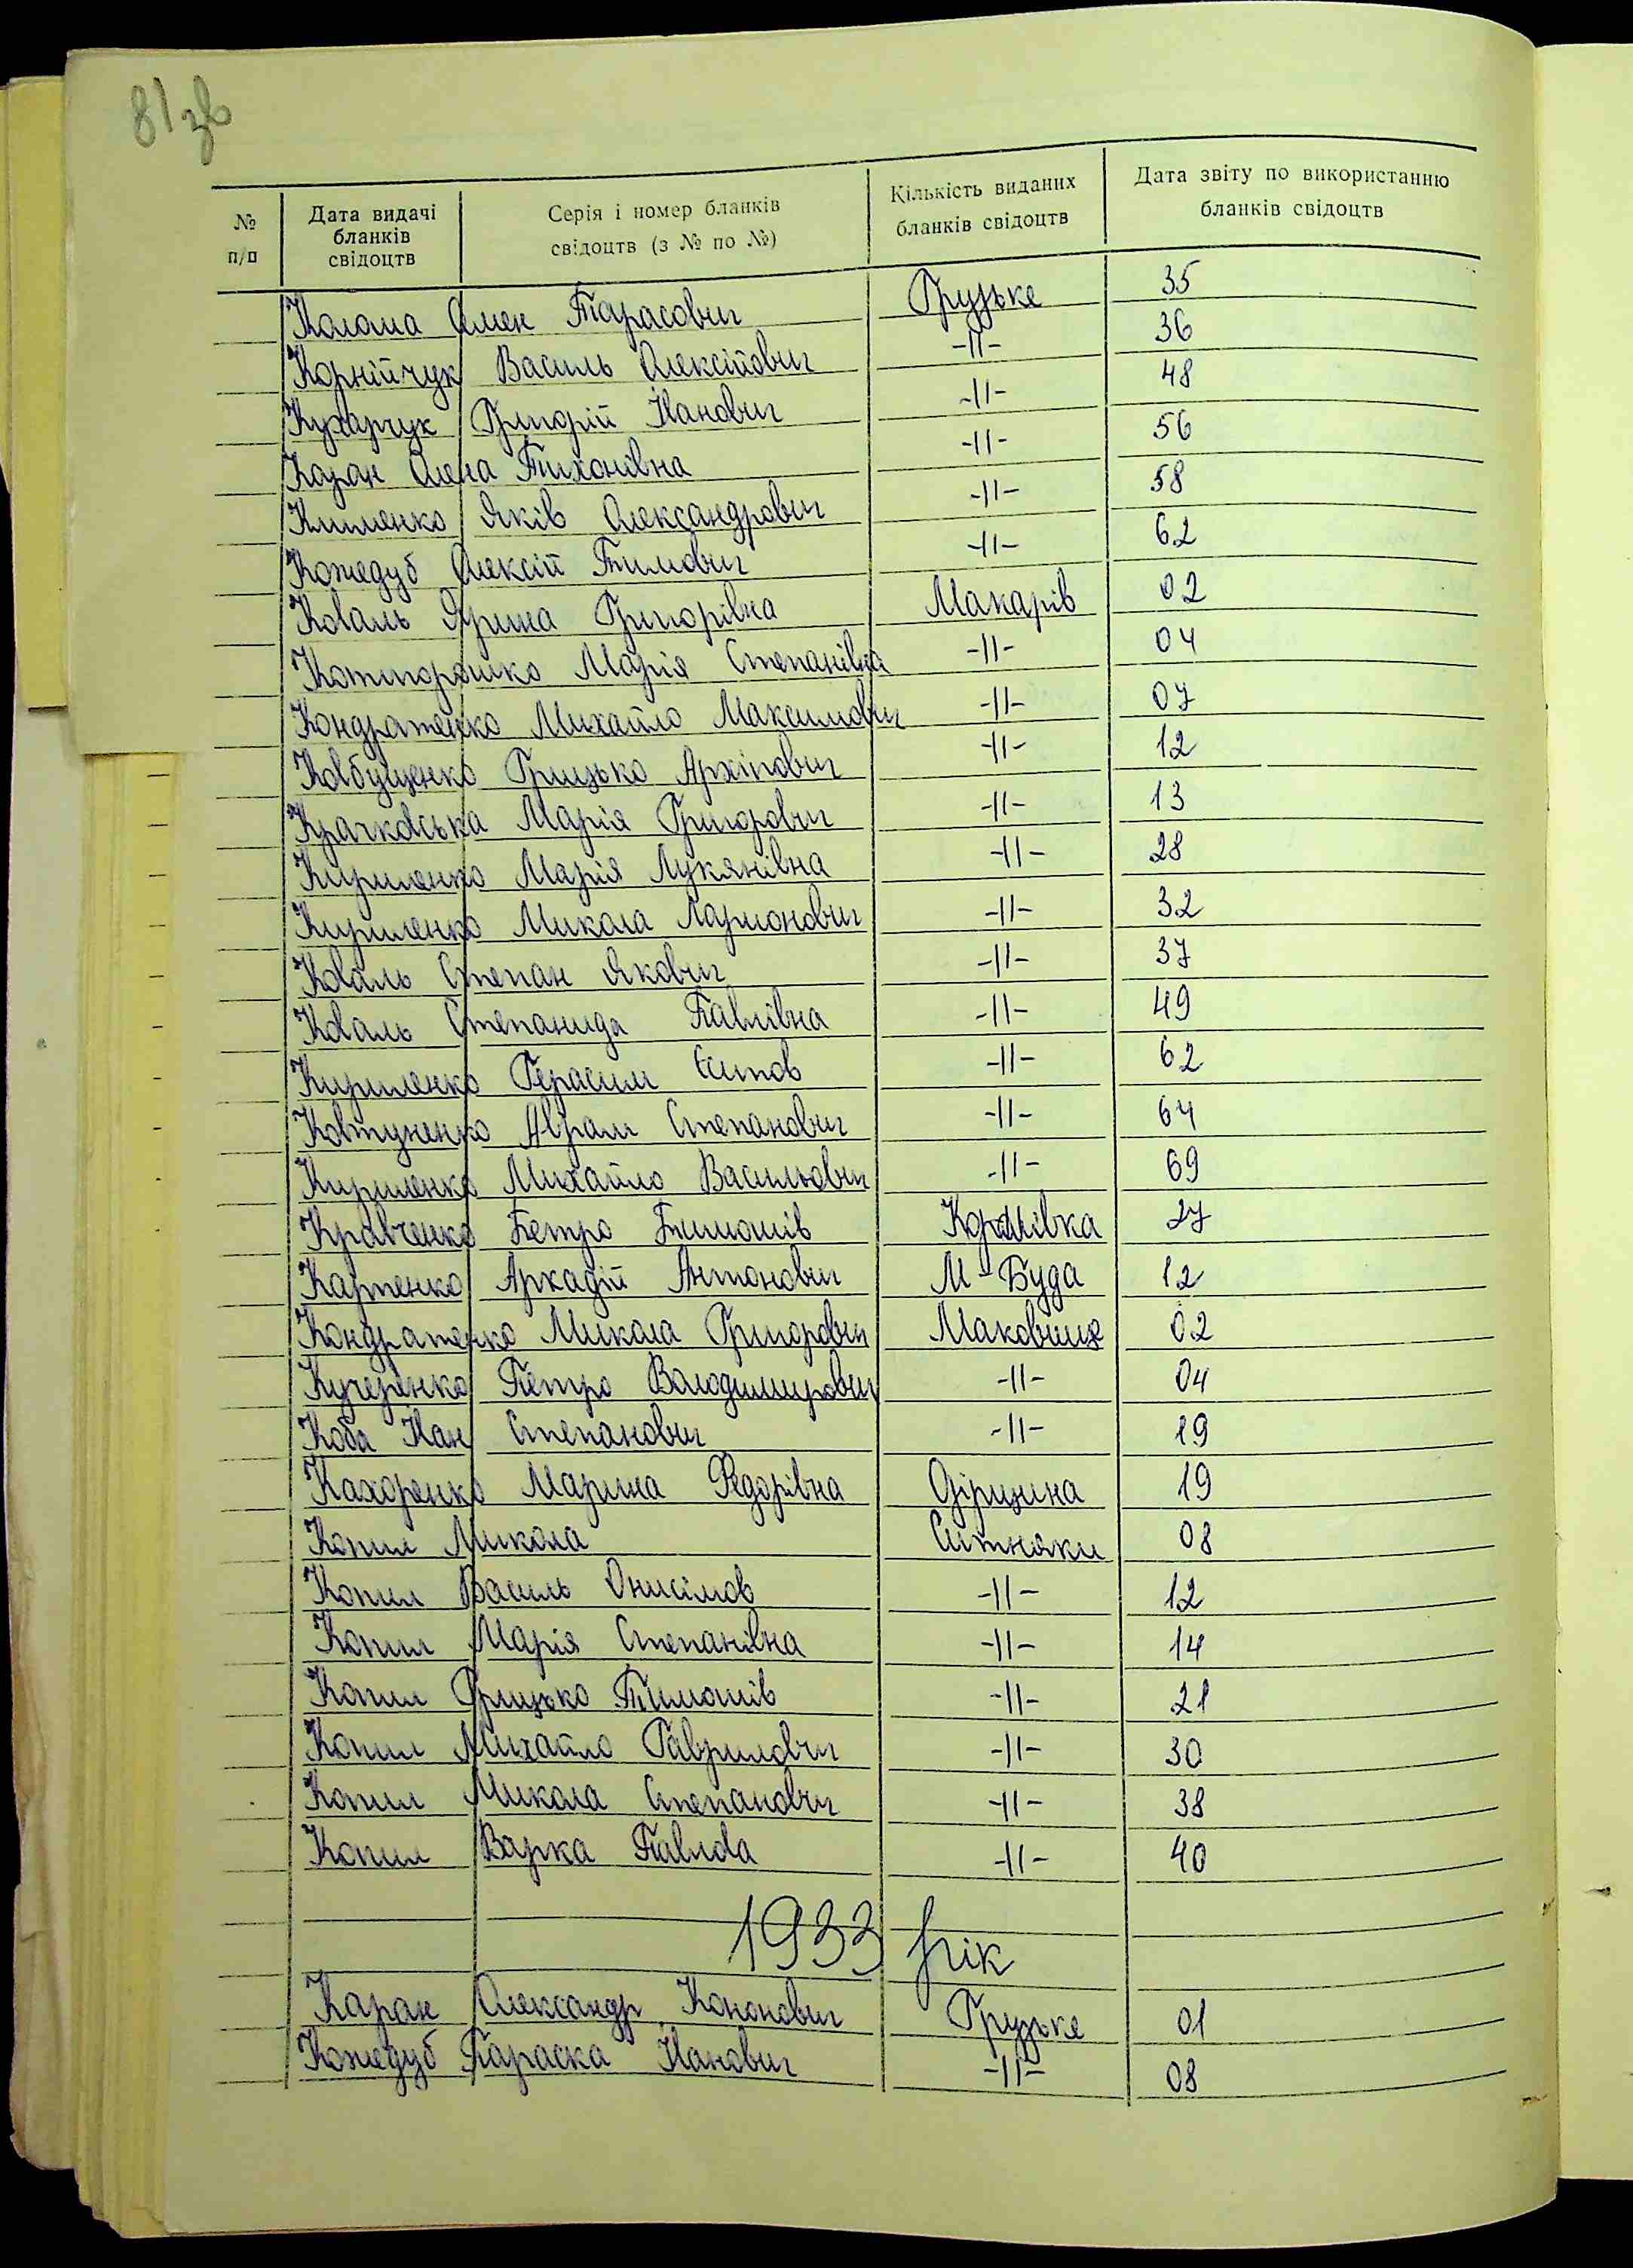 81зв
№ п/п
Дата видачі бланків свідоцтв
Серія і номер бланків свідоцтв (з № по №)
Кількість виданих бланків свідоцтв
Дата звіту по використанню бланків свідоцтв
Тарасович Грузьке 35
Корнійчук Василь Олексійович -//- 36
Кухарчук Григорій Іванович -//- 48
Каран Олена Тихонівна -//- 56
Клименко Яків Олександрович -//- 58
Кожедуб Олексій Тимович -//- 62
Коваль Ярина Григорівна Макарів 02
Марія Степанівна -//- 04
Кондратенко Михайло Максимович -//- 07
Грицько Архіпович -//- 12
Крачковська Марія Григорович -//- 13
Кириленко Марія Лукянівна -//- 28
Кириленко Микола Ларионович -//- 32
Коваль Степан Якович -//- 37
Коваль Степанида Павлівна -//- 49
Кириленко Герасим -//- 62
Ковтуненко Аврам Степанович -//- 64
Кириленко Михайло Васильович -//- 69
Кравченко Петро Тимошів Королівка 27
Карпенко Аркадій Антонович М-Буда 12
Кондратенко Микола Григорович Маковище 02
Кучеренко Петро Володимирович -//- 04
Коба Іван Степанович -//- 19
Марина Федорівна 19
Копил Микола Ситняки 08
Копил Василь Онисімов -//- 12
Копил Марія Степанівна -//- 14
Копил Грицько Тимошів -//- 21
Копил Михайло Гаврилович -//- 30
Копил Микола Степанович -//- 38
Копил Варка Павлова -//- 40
1933 рік
Каран Олександр Кононович Грузьке 01
Кожедуб Параска Іванович -//- 08